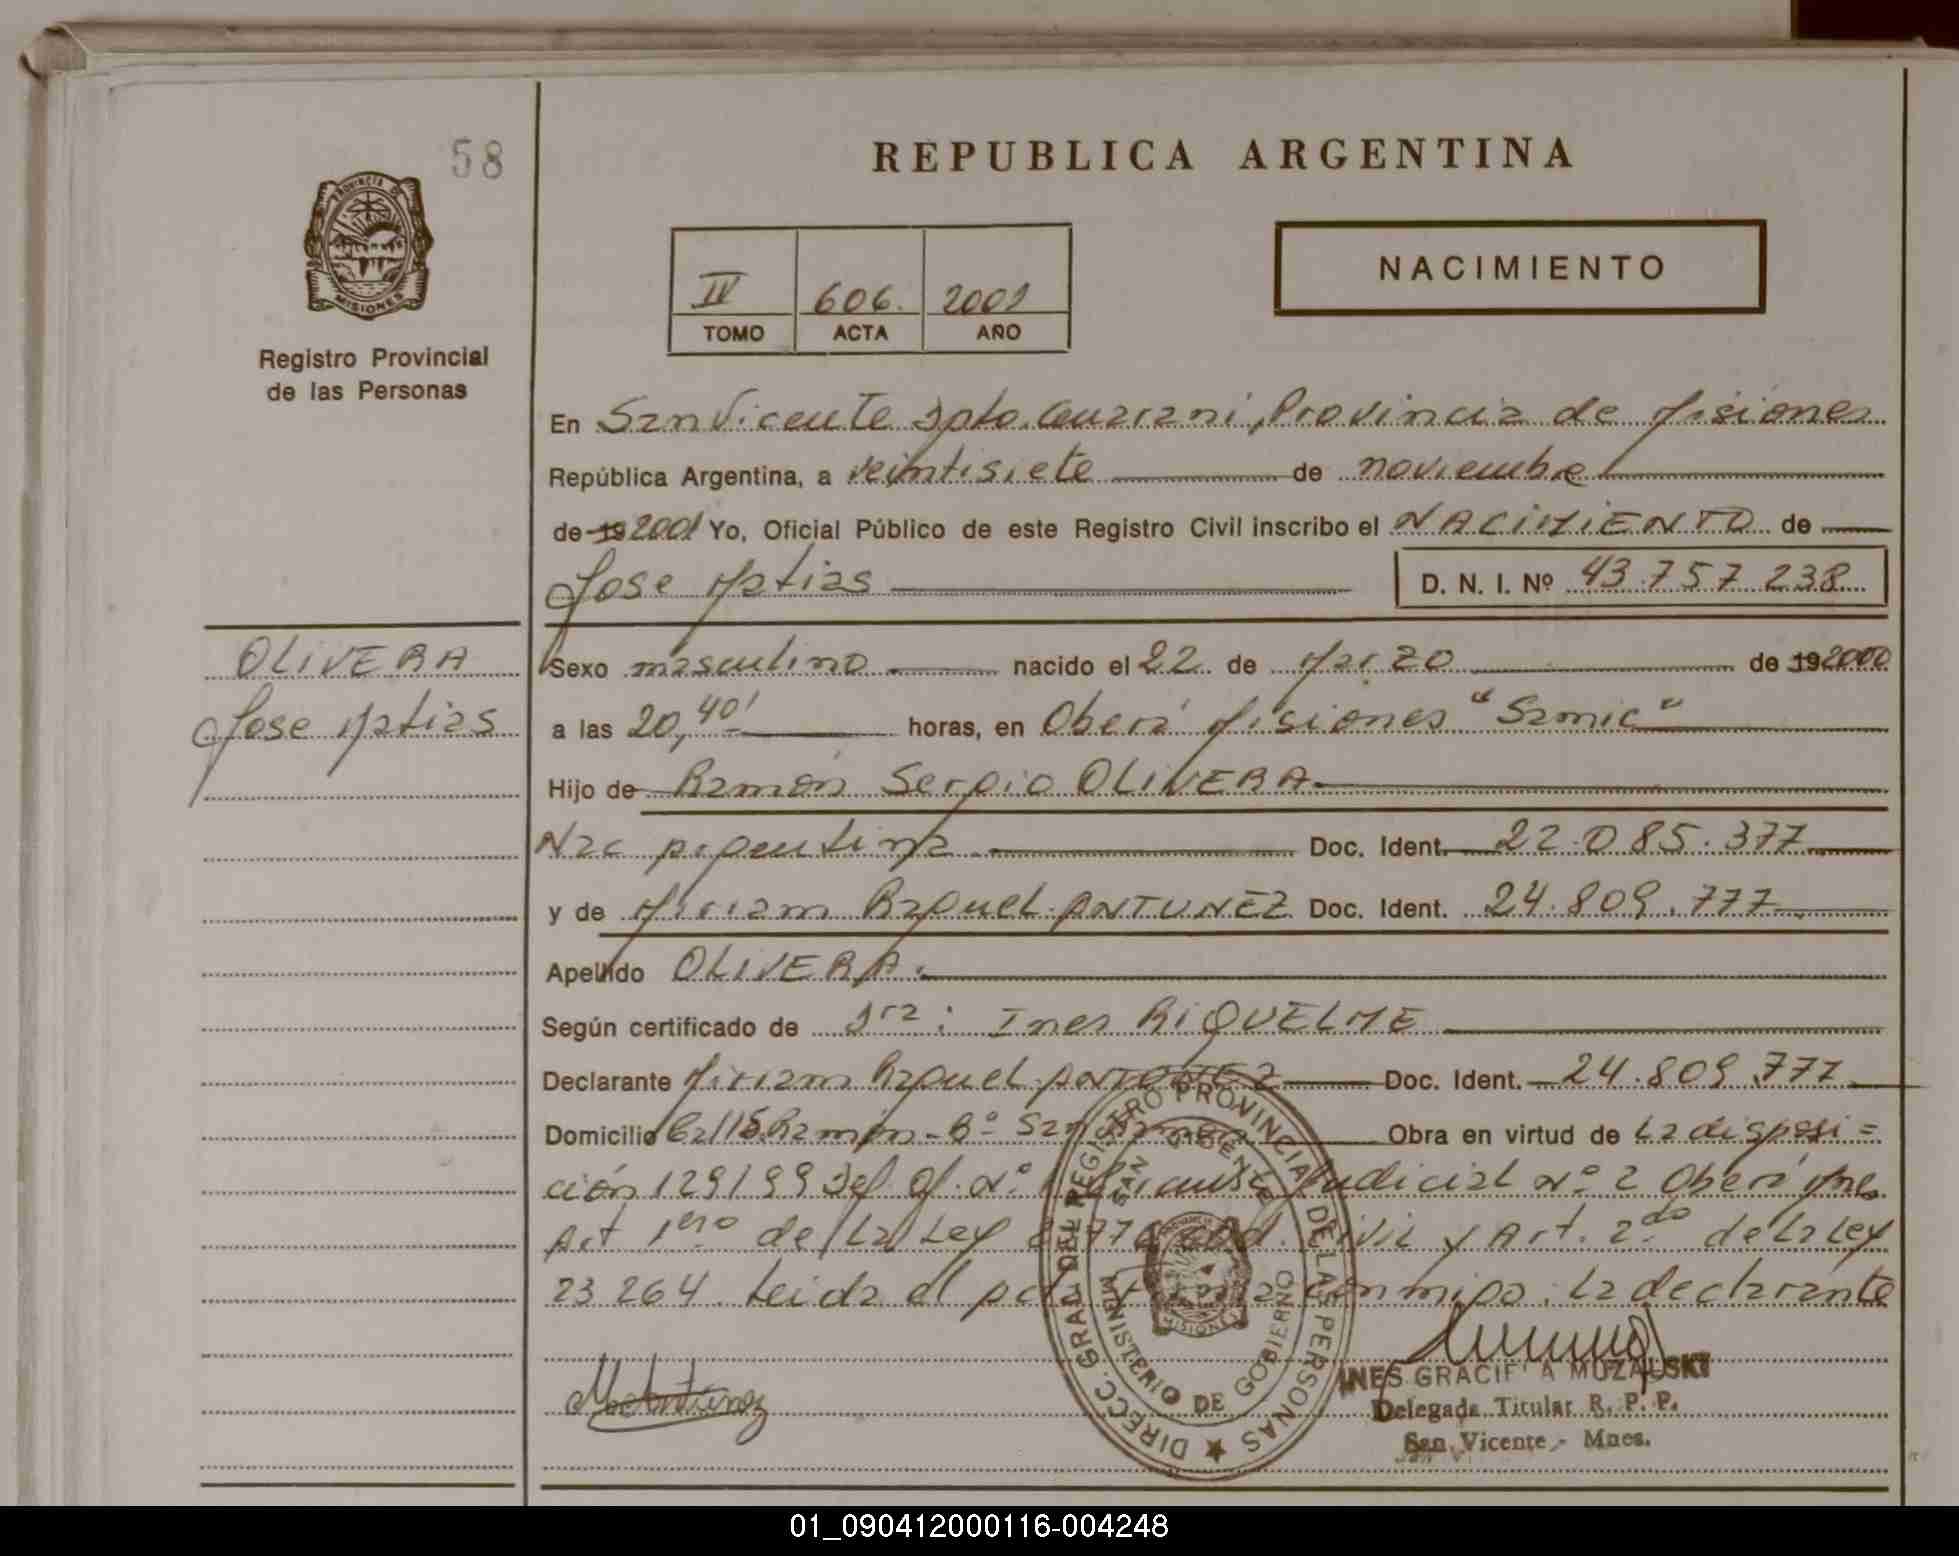 58
REPUBLICA ARGENTINA
PROVINCIA DE
MISIONES
Registro Provincial
de las Personas
IV 606. 2001
TOMO ACTA AÑO
NACIMIENTO
En San Vicente Dpto. Guarani, Provincia de Misiones
República Argentina, a veintisiete de noviembre
de 19 2001 Yo, Oficial Público de este Registro Civil inscribo el NACIMIENTO de
Jose Matias D. N. I. Nº 43.757.238
OLIVERA
Jose Matias
Sexo masculino nacido el 22 de Marzo de 19 2000
a las 20,40' horas, en Oberá Misiones "Samic"
Hijo de Ramón Sergio OLIVERA
Nac Argentina Doc. Ident. 22.085.377
y de Miriam Raquel ANTUNEZ Doc. Ident. 24.809.777
Apellido OLIVERA.
Según certificado de Dra: Ines RIQUELME
Declarante Miriam Raquel ANTUNEZ Doc. Ident. 24.809.777
Domicilio Ramón - Bº San Obra en virtud de La disposi=
ción 129/99 Def. Of. Nº Judicial Nº 2 Oberá Mnes.
Art 1ero de la Ley Civil y Art. 2do de la Ley
23.264. Leida el acta Firma conmigo: La declarante
DIRECC. GRAL. DEL REGISTRO PROVINCIAL DE LAS PERSONAS
SAN VICENTE
MINISTERIO DE GOBIERNO
PROVINCIA DE
MISIONES
MAntunez
INES GRACIELA MUZALSKI
Delegada Titular R. P. P.
San Vicente - Mnes.
01_090412000116-004248